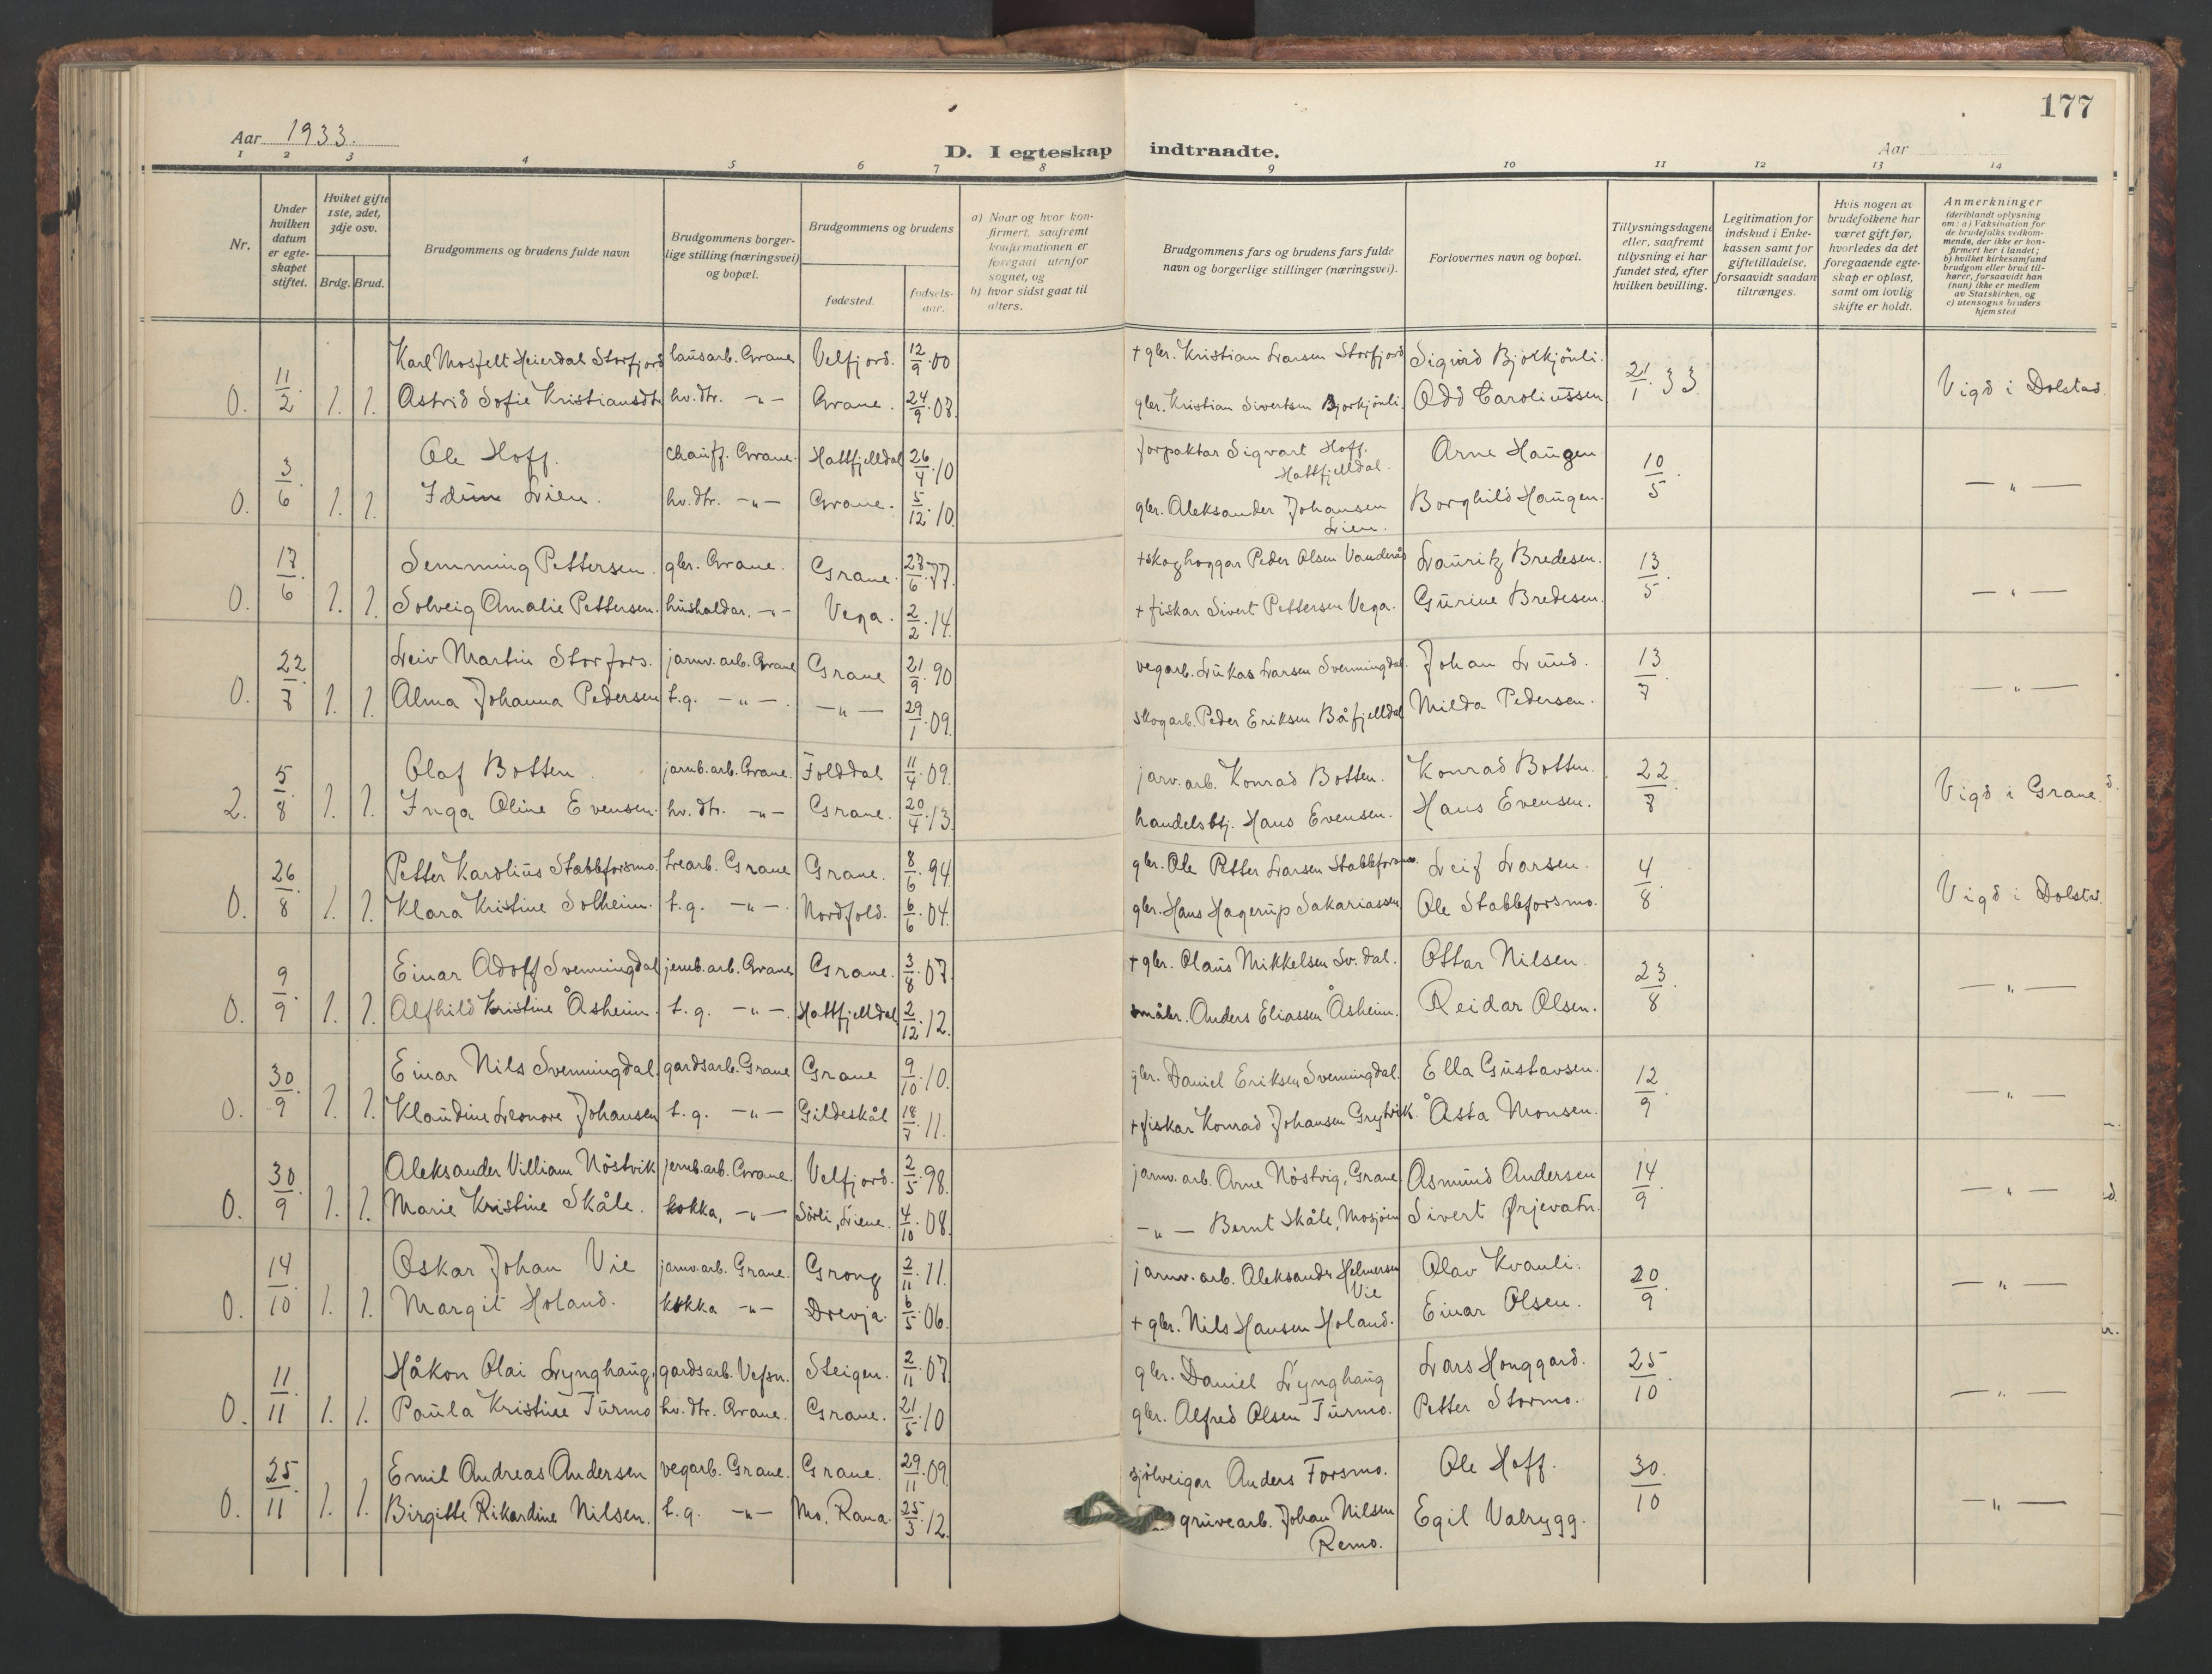 177
Aar 1933.
D. I egteskap indtraadte.
Aar
1 2 3 4 5 6 7 8 9 10 11 12 13 14
Nr.
Under hvilken datum er egteskapet stiftet.
Hviket gifte 1ste, 2det, 3dje osv.
Brdg. Brud.
Brudgommens og brudens fulde navn
Brudgommens borgerlige stilling (næringsvei) og bopæl.
Brudgommens og brudens
fødested.
fødselsaar.
a) Naar og hvor konfirmert, saafremt konfirmationen er foregaat utenfor sognet, og
b) hvor sidst gaat til alters.
Brudgommens fars og brudens fars fulde navn og borgerlige stillinger (næringsvei).
Forlovernes navn og bopæl.
Tillysningsdagene eller, saafremt tillysning ei har fundet sted, efter hvilken bevilling.
Legitimation for indskud i Enkekassen samt for giftetilladelse, forsaavidt saadan tiltrænges.
Hvis nogen av brudefolkene har været gift før, hvorledes da det foregaaende egteskap er opløst, samt om lovlig skifte er holdt.
Anmerkninger
(deriblandt oplysning om: a) Vaksination for de brudefolks vedkommende, der ikke er konfirmert her i landet; b) hvilket kirkesamfund brudgom eller brud tilhører, forsaavidt han (hun) ikke er medlem av Statskirken, og c) utensogns bruders hjemsted
Karl Mosfelt Heierdal Storfjord lausarb. Grane Velfjord. 12/9.00 + gbr. Kristian Larsen Storfjord Sigurd Bjørkjønli.
0. 11/2 1. 1. Astrid Sofie Kristiansdtr hv.dtr. -"- Grane. 24/9.03 gbr. Kristian Sivertsen Bjørkjønli. Odd Caroliussen 21/1.33. Vigd i Dolstad.
Ole Hoff. chauff. Grane. Hattfjelldal 26/4.10 forpaktar Sigvart Hoff. Hattfjelldal. Arne Haugen
0. 3/6. 1. 1. Idun Lien. hv.dtr. -"- Grane. 5/12.10. gbr. Aleksander Johansen Lien. Borghild Haugen. 10/5. -"-
Semming Pettersen. gbr. Grane. Grane. 27/6.77. + skoghoggar Peder Olsen Vanderås Lauritz Bredesen.
0. 17/6. 1. 1. Solveig Amalie Pettersen. husholdar. -"- Vega. 2/2.14. + fiskar Sivert Pettersen Vega. Gurine Bredesen. 13/5. -"-
Leiv Martin Storfors. jarnv.arb. Grane Grane 21/9.90 vegarb. Lukas Larsen Svenningdal. Johan Lund.
0. 22/7. 1. 1. Alma Johanna Pedersen t.g. -"-. -"- 29/1.09. skogarb. Peder Eriksen Båfjelldal Milda Pedersen. 13/7. -"-
Olaf Botten jarnb.arb. Grane. Folddal 11/4.09. jarv.arb. Konrad Botten. Konrad Botten.
2. 5/8. 1. 1. Inga Oline Evensen. hv.dtr. -"- Grane. 20/4.13. handelsbtj. Hans Evensen. Hans Evensen. 22/7. Vigd i Grane.
Petter Karolius Stabbforsmo. trearb. Grane Grane. 8/6.94 gbr. Ole Petter Larsen Stabbforsmo. Leif Larsen.
0. 26/8 1. 1. Klara Kristine Solheim. t.g. -"-. Nordfold. 6/6.04. gbr. Hans Hagerup Sakariassen Ole Stabbforsmo. 4/8. Vigd i Dolstad.
Einar Adolf Svenningdal jernb.arb. Grane Grane. 3/8.07. + gbr. Olaus Mikkelsen Sv.dal. Ottar Nilsen.
0. 9/9. 1. 1. Alfhild Kristine Åsheim. t.g. -"-. Hattfjelldal 2/12.12. småbr. Anders Eliassen Åsheim. Reidar Olsen. 23/8. -"-
Einar Nils Svenningdal. gardsarb. Grane Grane 9/10.10. gbr. Daniel Eriksen Svenningdal. Ella Gustavsen.
0. 30/9. 1. 1. Klaudine Leonore Johansen t.g. -"- Gildeskål 18/7.11. + fiskar Konrad Johansen Grytvik. Åsta Monsen. 12/9. -"-
Aleksander Villiam Nöstvik jernb.arb. Grane. Velfjord. 2/5.98. jarnv.arb. Arne Nöstvig, Grane Asmund Andersen
0. 30/9 1. 1. Marie Kristine Skåle. kokka, -"- Sörli, Liene. 4/10.08. -"- Bernt Skåle, Mosjöen Sivert Ørjevatn. 14/9. -"-
Oskar Johan Vie jarnv.arb. Grane. Grong 2/11.11. jarnv.arb. Aleksander Helmersen Vie Olav Kvanli.
0. 14/10 1. 1. Margit Holand. kokka -"- Drevja. 6/5.06. + gbr. Nils Hansen Holand. Einar Olsen. 20/9. -"-
Håkon Olai Lynghaug. gardsarb. Vefsn. Steigen. 2/11.07. gbr. Daniel Lynghaug Lars Honggard.
0. 11/11. 1. 1. Paula Kristine Turmo hv.dtr. Grane. Grane. 21/5.10 gbr. Alfred Olsen Turmo. Petter Stormo. 25/10. -"-
Emil Andreas Andersen vegarb. Grane. Grane. 29/11.09. sjølveigar Anders Forsmo. Ole Hoff.
0. 25/11. 1. 1. Birgitte Rikardine Nilsen. t.g. -"- Mo, Rana. 25/3.12. gruvearb. Johan Nilsen Remo. Egil Valrygg. 30/10 -"-